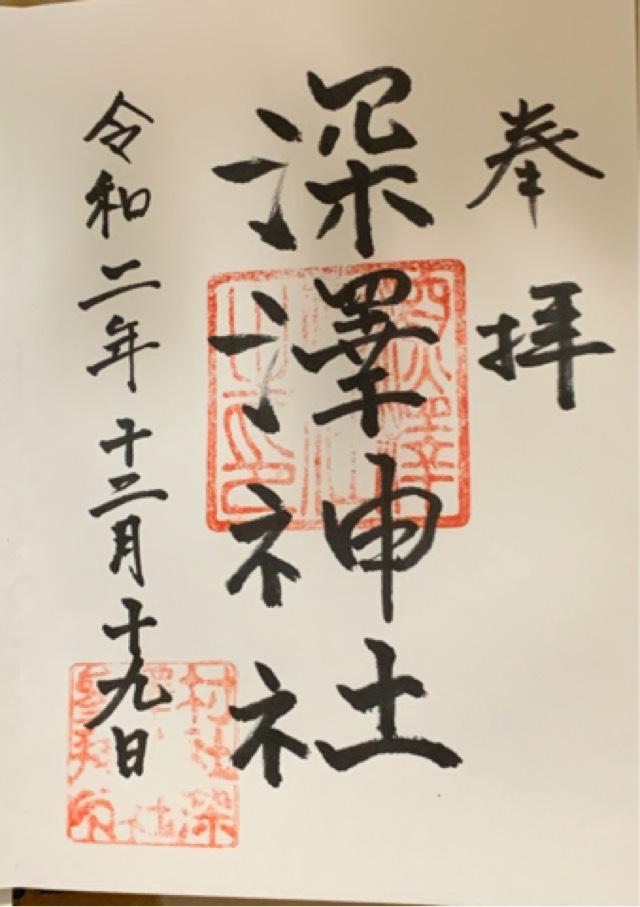 奉拝
深澤神社
令和二年十二月十九日